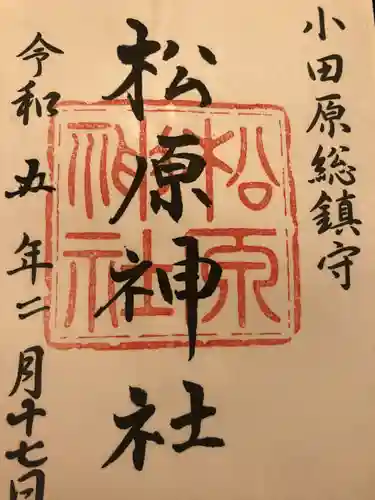 小田原総鎮守
松原神社
松原神社
令和五年二月十七日